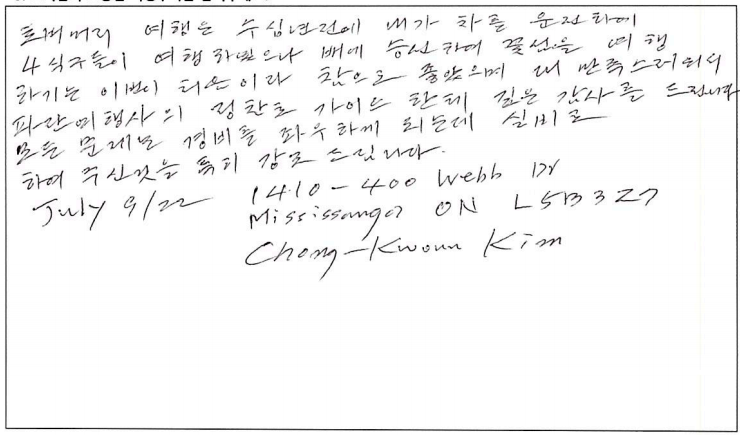 토버머리 여행은 수십년전에 내가 차를 운전하여
4식구들이 여행하였으나 배에 승선하여 꽃섬을 여행
하기는 이번이 처음이라 참으로 좋았으며 대 만족스러워서
파란여행사의 정찬호 가이드 한테 깊은 감사를 드립니다
모든 문제는 경비를 좌우하게 되는데 실비로
하여 주신것을 특히 강조 드립니다.
July 9/22 1410-400 Webb Dr
Mississauga ON L5B 3Z7
Chong-Kwoun Kim